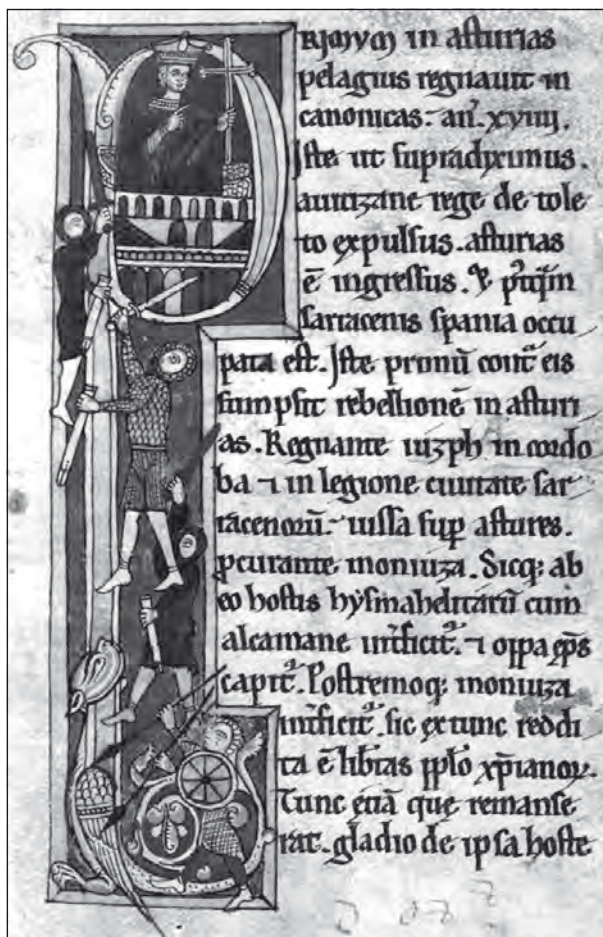 PRIMVM in asturias
pelagius regnauit in
canonicas. an̄. xviiij.
Iste ut supradiximus.
auitizane rege de tole
to expulsus. asturias
ē ingressus. &
sarracenis spania occu
pata est. Iste primū cont̄ eis
sumpsit rebellionē in asturi
as. Regnante iuzph in cordo
ba ⁊ in legione ciuitate sar
racenorū. iussa sup astures.
pcurante monniza. Sicq; ab
eo hostis hysmahelitarū cum
alcamane int̄ficit᷑. ⁊ oppa ep̄s
capit᷑. Postremoq; monniza
int̄ficit᷑. sic ex tunc reddi
ta ē lib̄tas pplo xp̄ianoꝝ.
Tunc etiā que remanse
rat. gladio de ipsa hoste